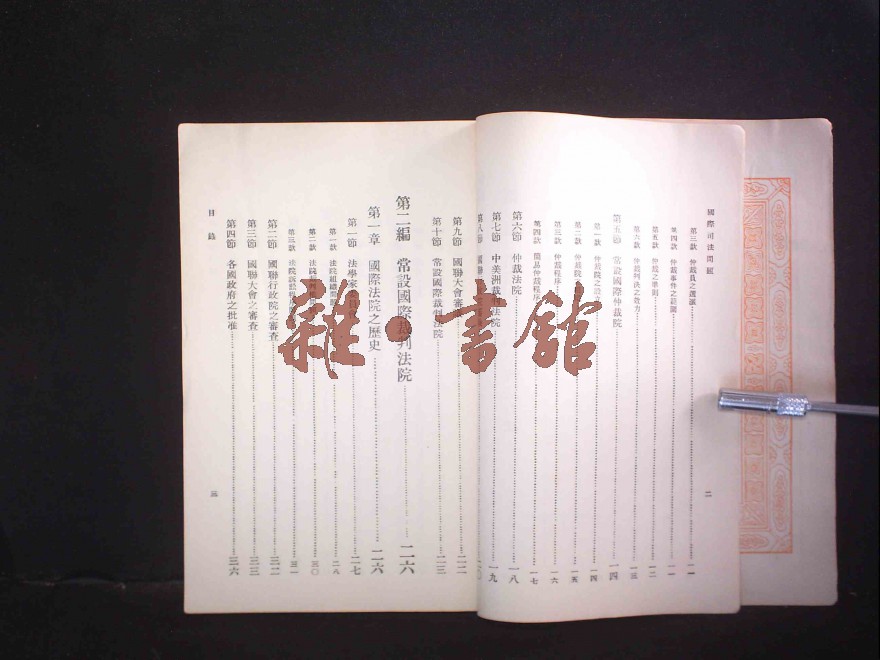 國際司法問題
二
第三款 仲裁員之選派 一一
第四款 仲裁事件之範圍 一一
第五款 仲裁之準則 一二
第六款 仲裁判決之效力 一三
第五節 常設國際仲裁院 一四
第一款 仲裁院之 一四
第二款 仲裁院 一五
第三款 仲裁程序 一六
第四款 簡易仲裁程序 一七
第六節 仲裁法院 一八
第七節 中美洲裁判法院 一九
第八節 國聯
第九節 國聯大會審 二二
第十節 常設國際裁判法院 二三
第二編 常設國際裁判法院 二六
第一章 國際法院之歷史 二六
第一節 法學家委員會 二七
第一款 法院組織 二八
第二款 法院 三〇
第三款 法院訴訟程序 三一
第二節 國聯行政院之審查 三二
第三節 國聯大會之審查 三三
第四節 各國政府之批准 三六
目錄
三
雜·書館